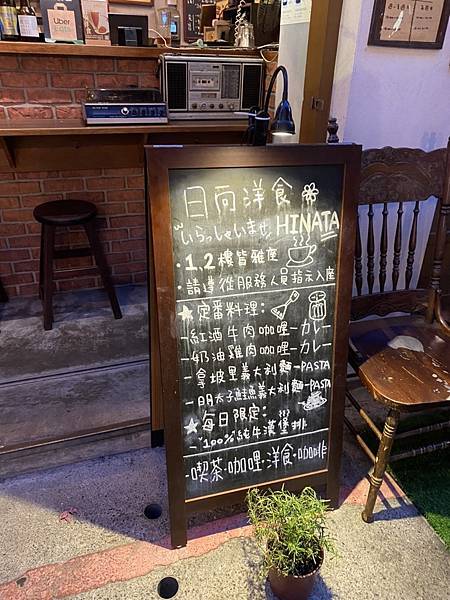 Uber
Eats
日向洋食
いらっしゃいませ HINATA
・1,2樓皆雅座
・請遵從服務人員指示入座
★定番料理:
-紅酒牛肉咖哩-カレー
-奶油雞肉咖哩-カレー
-拿坡里義大利麵-PASTA
-明太子鮭魚義大利麵-PASTA
★每日限定:
100%純牛漢堡排
・喫茶・咖哩・洋食・咖啡